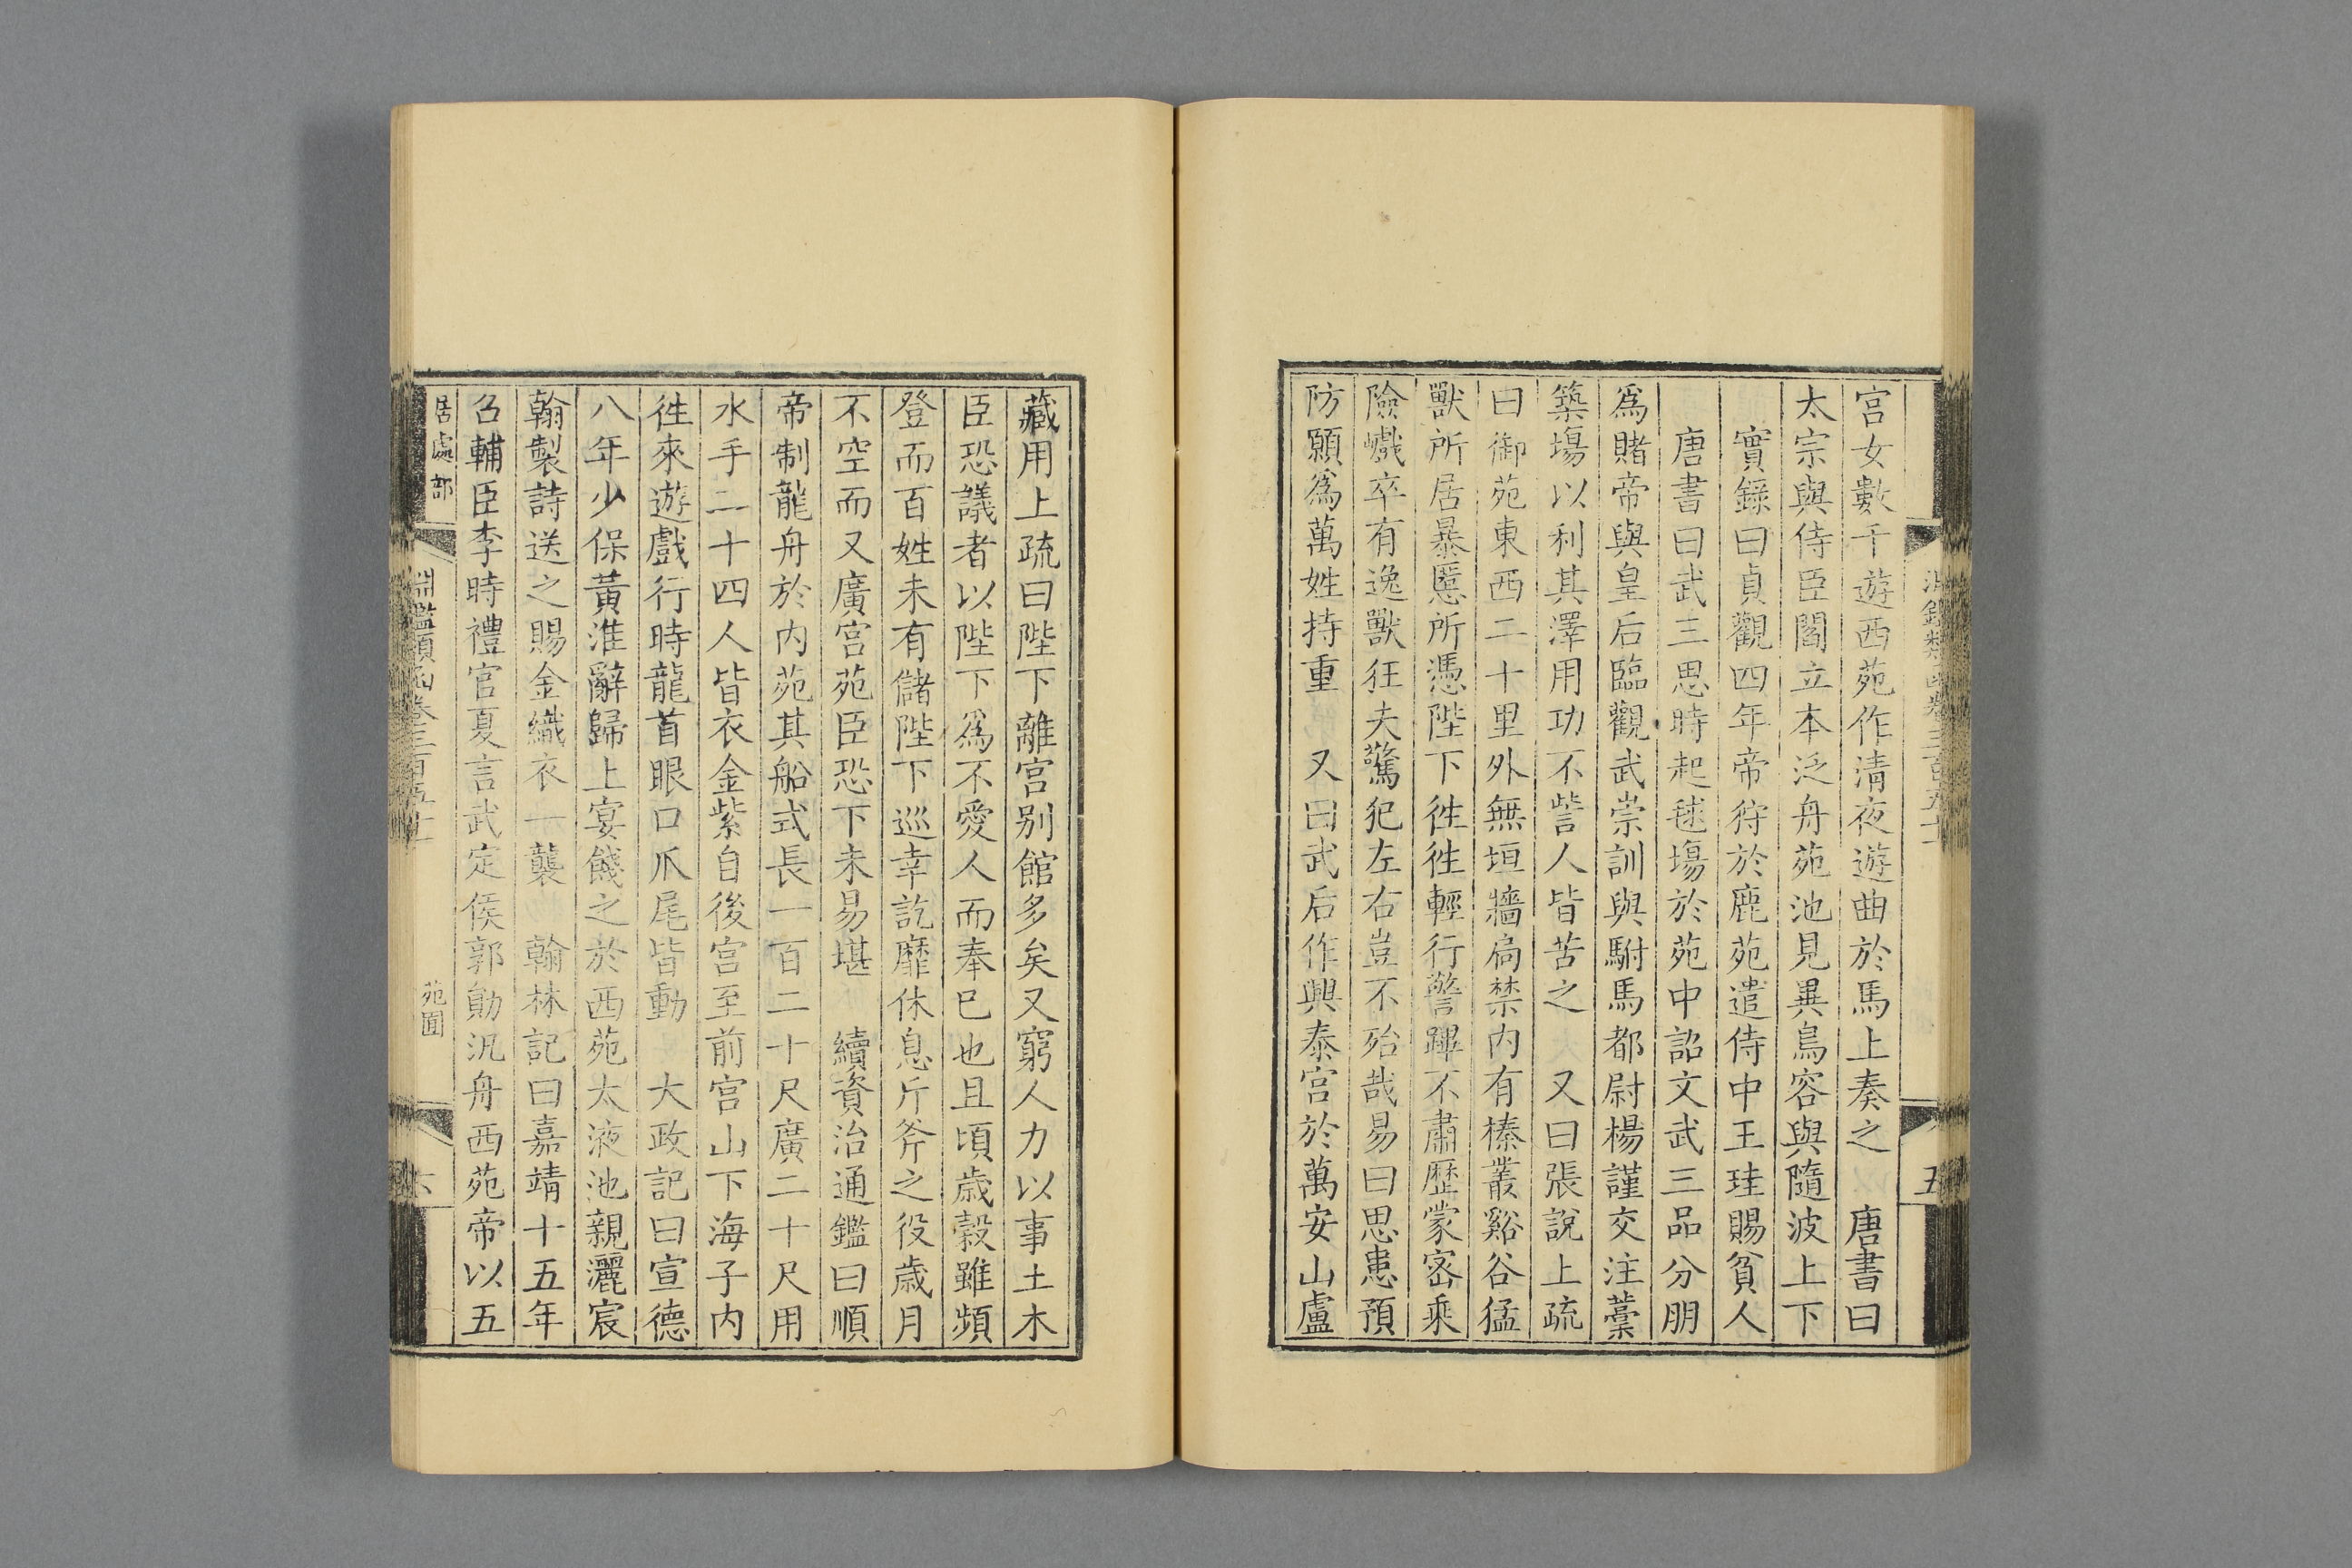 宮女數千遊西苑作清夜遊曲於馬上奏之 唐書曰
太宗與侍臣閻立本泛舟苑池見異鳥容與隨波上下
實錄曰貞觀四年帝狩於鹿苑遣侍中王珪賜貧人
唐書曰武三思時起毬場於苑中詔文武三品分朋
爲賭帝與皇后臨觀武崇訓與駙馬都尉楊謹交注藁
築場以利其澤用功不訾人皆苦之 又曰張說上疏
曰御苑東西二十里外無垣牆扃禁內有榛叢谿谷猛
獸所居暴慝所憑陛下徃徃輕行警蹕不肅歷蒙密乘
險巇卒有逸獸狂夫驚犯左右豈不殆哉易曰思患預
防願爲萬姓持重 又曰武后作興泰宮於萬安山盧
五
藏用上疏曰陛下離宮別館多矣又窮人力以事土木
臣恐議者以陛下爲不愛人而奉已也且頃歲穀雖頻
登而百姓未有儲陛下巡幸訖靡休息斤斧之役歲月
不空而又廣宮苑臣恐下未易堪 續資治通鑑曰順
帝制龍舟於內苑其船式長一百二十尺廣二十尺用
水手二十四人皆衣金紫自後宮至前宮山下海子內
徃來遊戲行時龍首眼口爪尾皆動 大政記曰宣德
八年少保黃淮辭歸上宴餞之於西苑太液池親灑宸
翰製詩送之賜金織衣一襲 翰林記曰嘉靖十五年
召輔臣李時禮官夏言武定侯郭勛汎舟西苑帝以五
居處部
淵鑑類函卷三百五十
苑囿
六